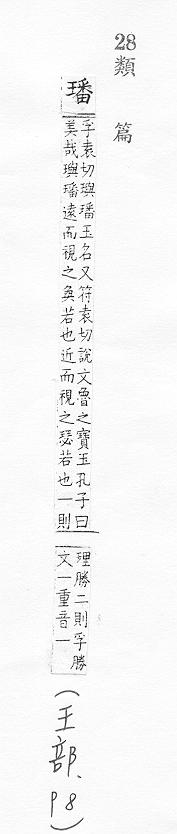 28類篇
璠
孚袁切璵璠玉名又符袁切說文魯之寶玉孔子曰
美哉璵璠遠而視之奐若也近而視之瑟若也一則
理勝二則孚勝
文一重音一
(王部、P8)